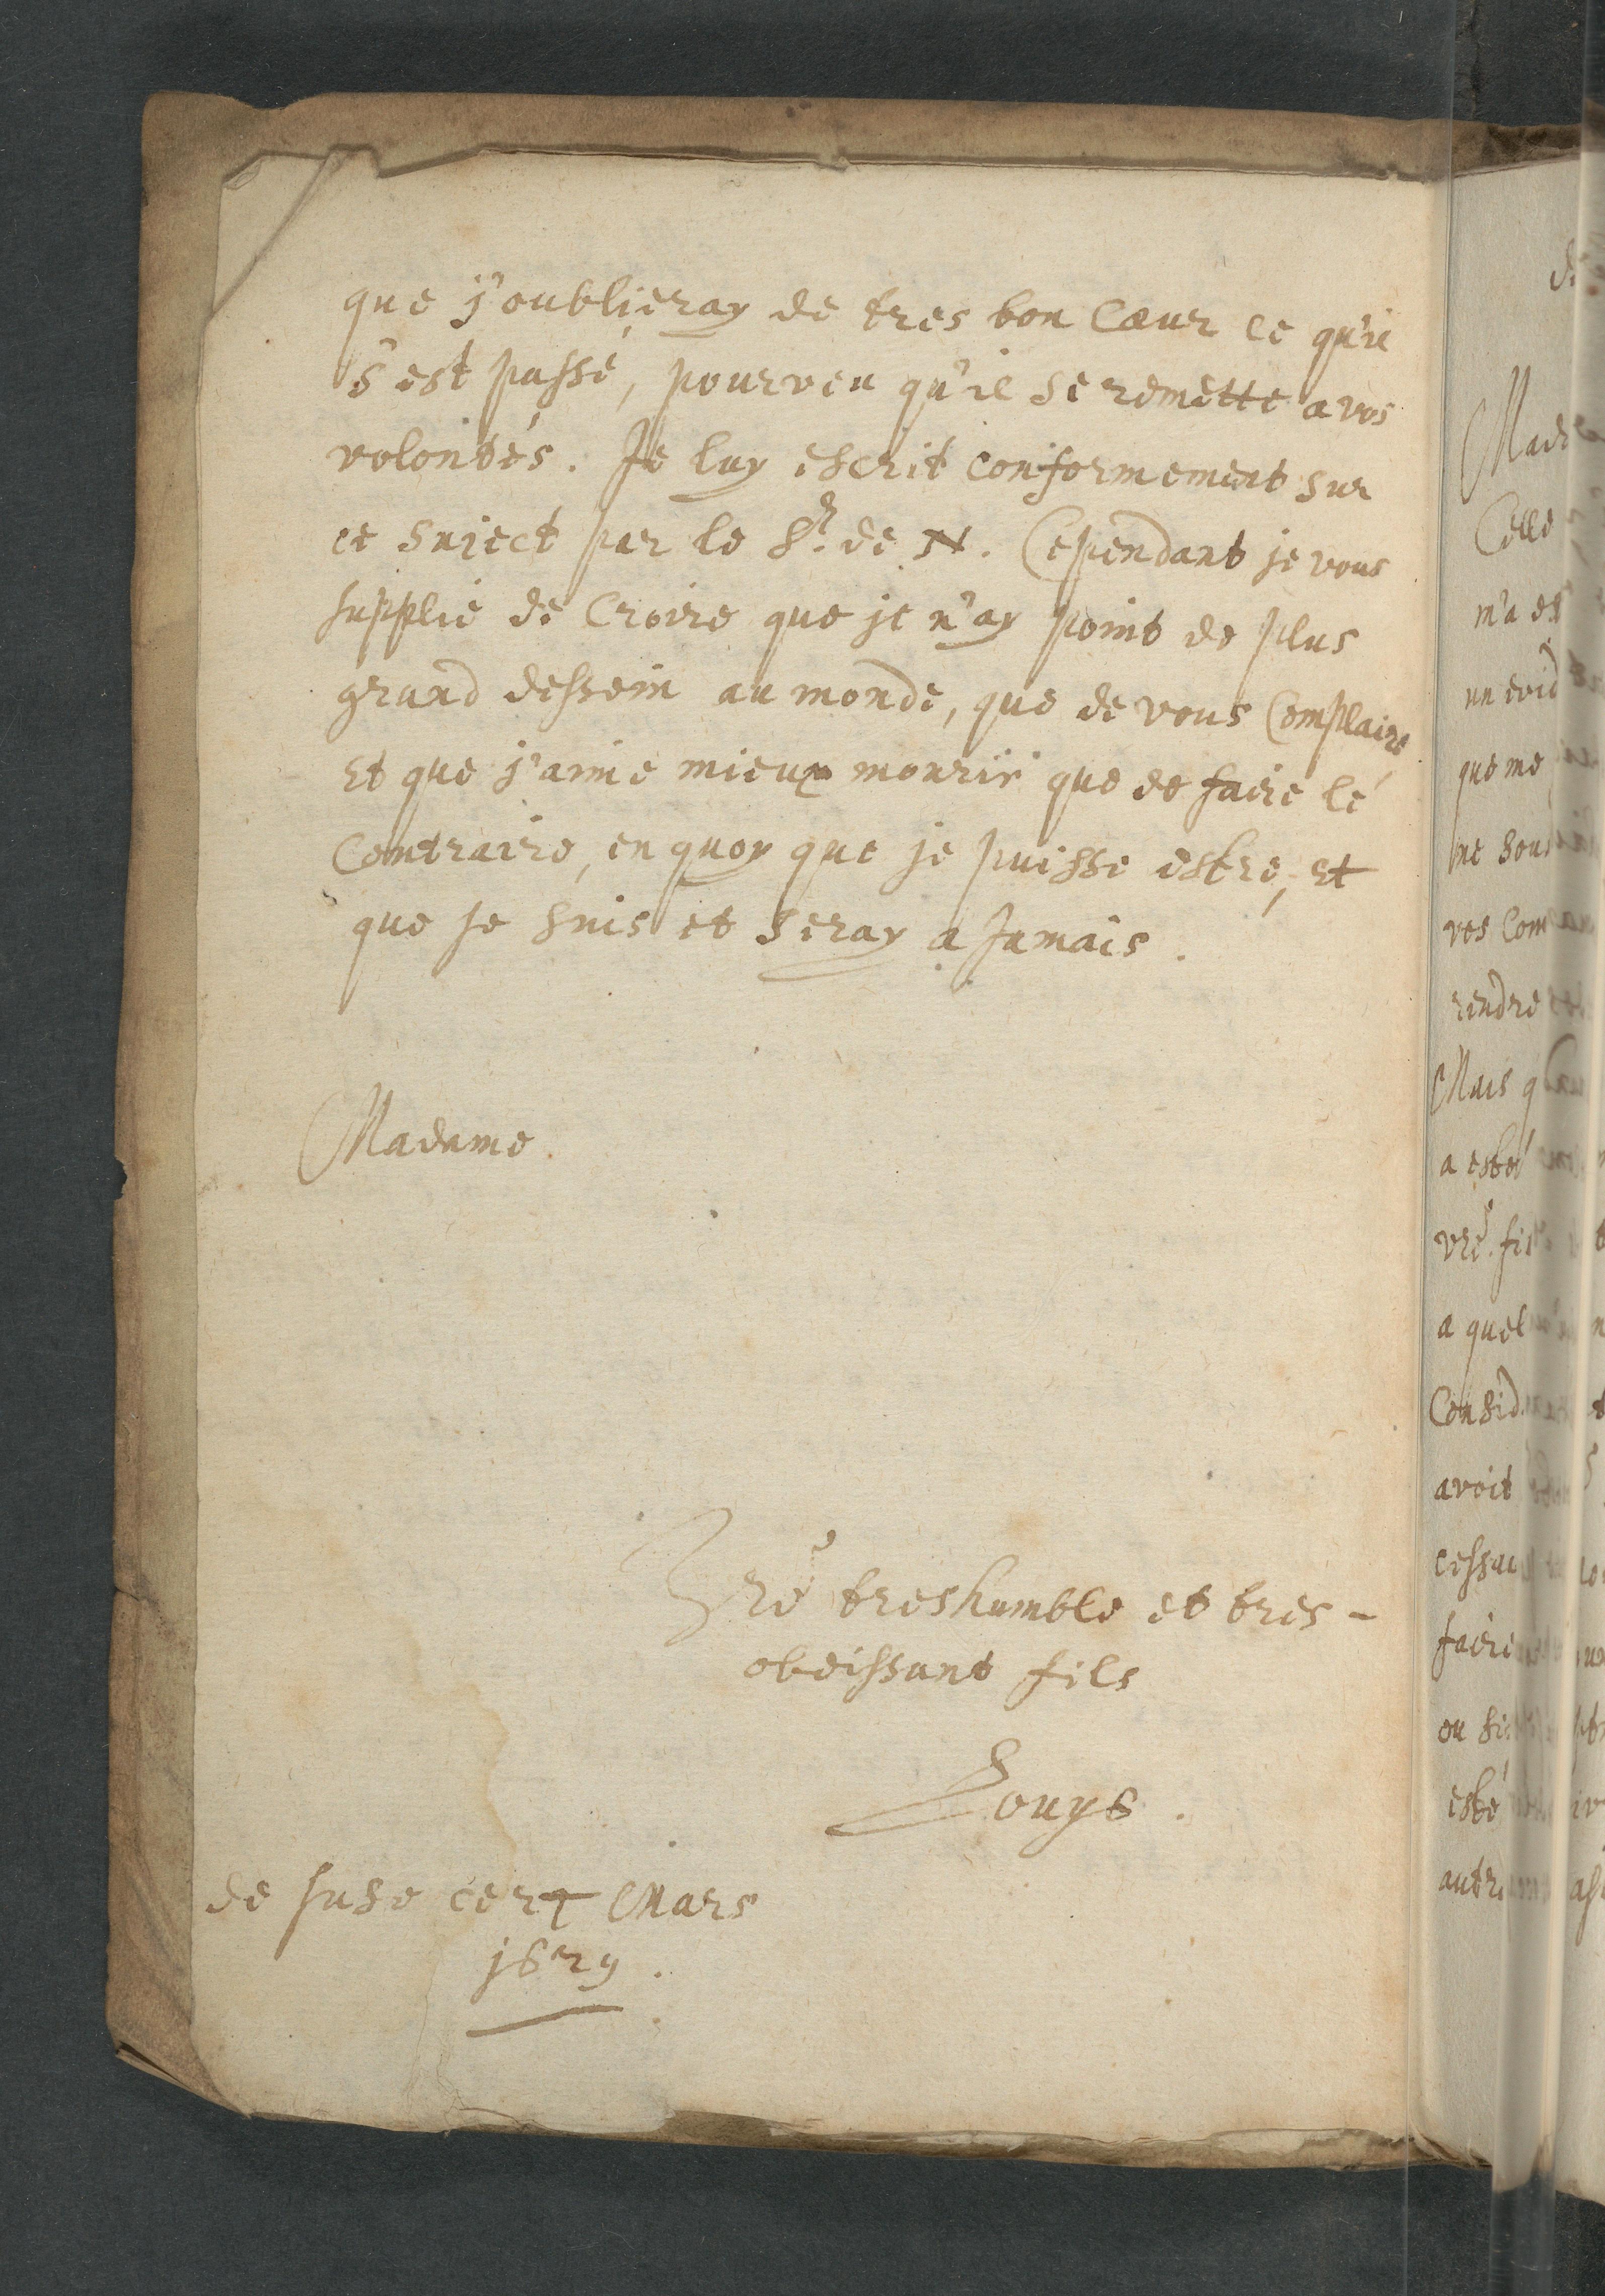 que j'oublieray de tres bon Cœur ce qu'il
s'est passé, pourveu qu'il se remette a vos
volontés. Je luy escrit conformement sur
ce suject par le Sr. de N. Cependant je vous
supplie de Croire que je n'ay point de plus
grand dessein au monde, que de vous Complaire
et que j'aime mieux mourir que de faire le
Contraire, en quoy que je puisse estre, et
que je suis et seray a Jamais.
Madame.
Vre treshumble et tres-
obeissant fils
Louys.
de suse ce
Mars
1629.
Celle
m'a
que me
vos Com
rendre
Mais
a esté
vre fi
a quel
Consid
avoit
cessai
faire
esté
autre